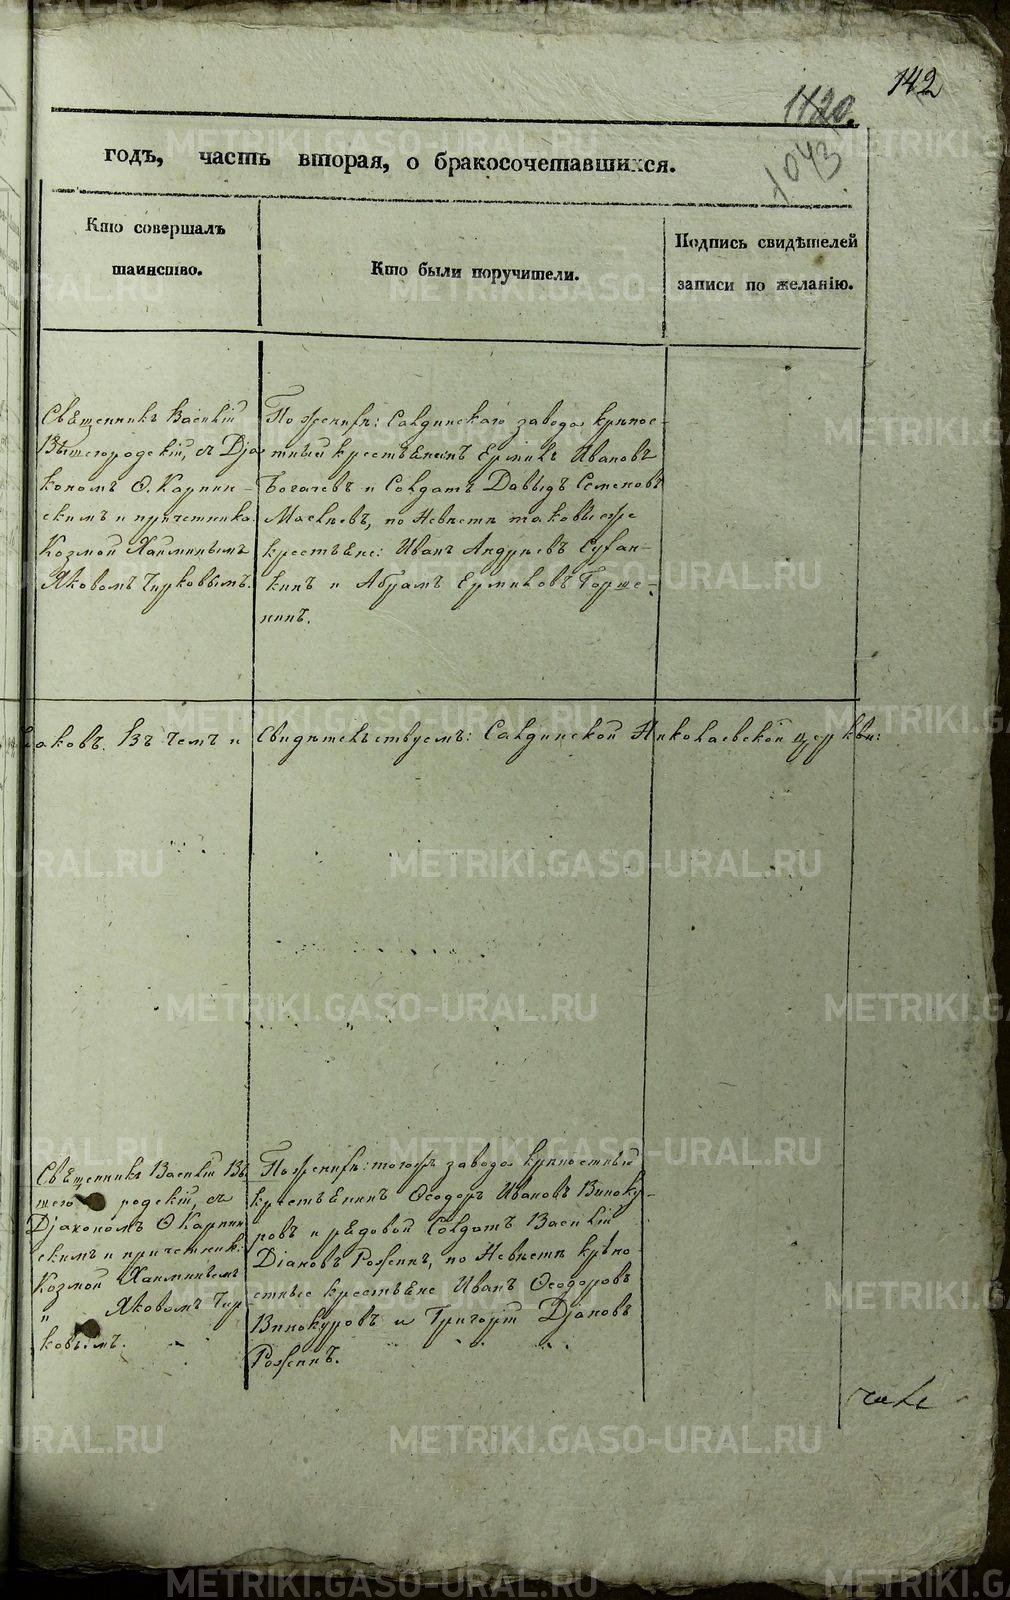 142
1120.
1043
годъ, часть вторая, о бракосочетавшихся.
Кто совершалъ
таинство.
Кто были поручители.
Подпись свидѣтелей
записи по желанію.
Священникъ Василій
Вышегородскій, съ Діа
кономъ Ѳ. Карпин-
скимъ и причетника.
Козмой Хаминымъ
Яковомъ Чирковымъ.
По женихѣ: Салдинскаго завода крѣпос-
тный крестьянинъ Ермилъ Ивановъ
Богачевъ и Солдатъ Давыдъ Семеновъ
по Невѣстѣ таковые же
крестьяне: Иванъ Андреевъ
кинъ и Абрамъ Ермиловъ Горше-
нинъ.
аковъ. Въ чемъ и Свидѣтельствуемъ: Салдинской Николаевской церкви:
Священникъ Василій Вы
шего родскій, съ
Діакономъ Ѳ Карпин
скимъ и причетник:
Козмой Хаминымъ
" Яковомъ Чир
ковымъ.
По женихѣ: тогожъ завода крѣпостный
крестьянинъ Ѳеодоръ Ивановъ Виноку-
ровъ и рядовой Солдатъ Василій
Діановъ по Невѣстѣ крѣпо
стные крестьяне Иванъ Ѳеодоровъ
Винокуровъ и Григорій Діановъ
METRIKI.GASO-URAL.RU